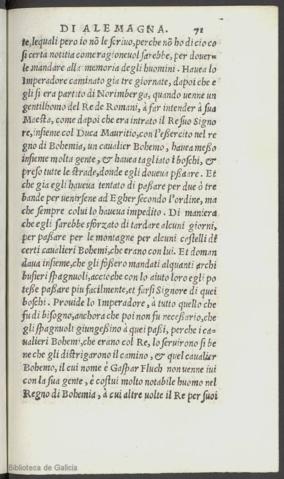 DI ALEMAGNA. 71
te, lequali pero io nõ le scriuo, perche nõ ho di cio co
si certa notitia come ragioneuol sarebbe, per douer=
le mandare alla memoria degli huomini. Hauea lo
Imperadore caminato gia tre giornate, dapoi che e
gli si era partito di Norimberga, quando uenne un
gentilhomo del Re de Romani, à far intender à sua
Maesta, come dapoi che era intrato il Re suo Signo
re, insieme col Duca Mauritio, con l'essercito nel re
gno di Bohemia, un caualier Bohemo, hauea messo
insieme molta gente, & hauea tagliato i boschi, &
preso tutte le strade, donde egli doueua passare. Et
che gia egli haueua tentato di passare per due ò tre
bande per uenirsene ad Egher secondo l'ordine, ma
che sempre colui lo haueua impedito. Di maniera
che egli sarebbe sforzato di tardare alcuni giorni,
per passare per le montagne per alcuni castelli di
certi caualieri Bohemi, che erano con lui. Et doman
daua insieme, che gli fossero mandati alquanti archi
busieri spagnuoli, accioche con lo aiuto loro egli po
tesse passare piu facilmente, et farsi Signore di quei
boschi. Prouide lo Imperadore, à tutto quello che
fu di bisogno, anchora che poi non fu necessario, che
gli spagnuoli giungessino à quei passi, perche i ca=
ualieri Bohemi, che erano col Re, lo seruirono si be
ne che gli distrigarono il camino, & quel caualier
Bohemo, il cui nome è Gaspar Fluch non uenne iui
con la sua gente, è costui molto notabile huomo nel
Regno di Bohemia, à cui altre uolte il Re per suoi
Biblioteca de Galicia